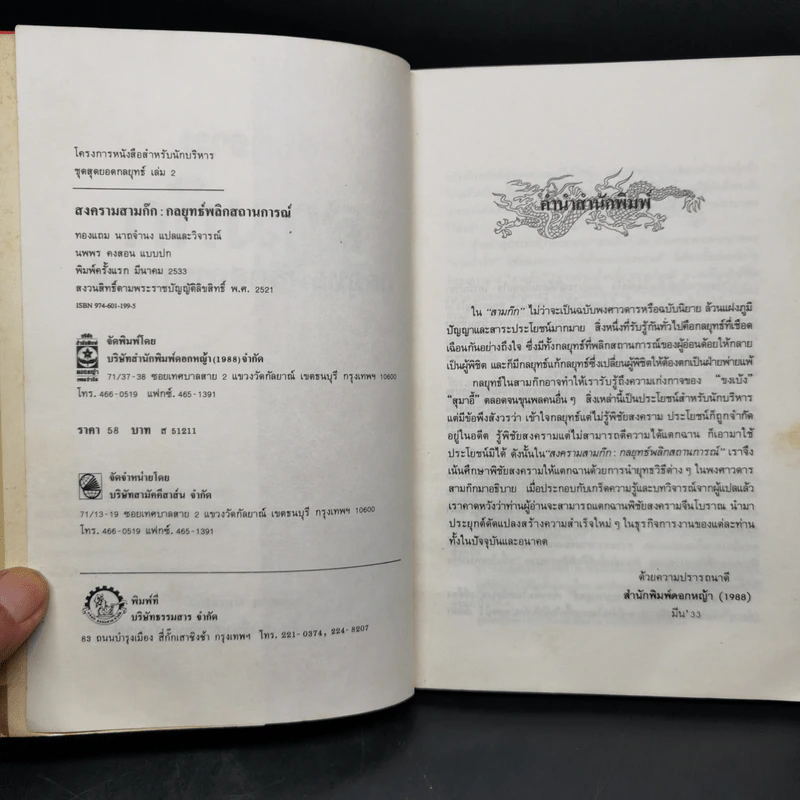 โครงการหนังสือสำหรับนักบริหาร
ชุดสุดยอดกลยุทธ์ เล่ม 2
สงครามสามก๊ก : กลยุทธ์พลิกสถานการณ์
ทองแถม นาถจำนง แปลและวิจารณ์
นพพร คงสอน แบบปก
พิมพ์ครั้งแรก มีนาคม 2533
สงวนสิทธิ์ตามพระราชบัญญัติลิขสิทธิ์ พ.ศ. 2521
ISBN 974-601-199-5
จัดพิมพ์โดย
บริษัทสำนักพิมพ์ดอกหญ้า (1988) จำกัด
71/37-38 ซอยเทศบาลสาย 2 แขวงวัดกัลยาณ์ เขตธนบุรี กรุงเทพฯ 10600
โทร. 466-0519 แฟกซ์. 465-1391
ราคา 58 บาท ส 51211
จัดจำหน่ายโดย
บริษัทสามัคคีสาส์น จำกัด
71/13-19 ซอยเทศบาลสาย 2 แขวงวัดกัลยาณ์ เขตธนบุรี กรุงเทพฯ 10600
โทร. 466-0519 แฟกซ์. 465-1391
พิมพ์ที่
บริษัทธรรมสาร จำกัด
83 ถนนบำรุงเมือง สี่กั๊กเสาชิงช้า กรุงเทพฯ โทร. 221-0374, 224-8207
คำนำสำนักพิมพ์
ใน "สามก๊ก" ไม่ว่าจะเป็นฉบับพงศาวดารหรือฉบับนิยาย ล้วนแฝงภูมิ
ปัญญาและสาระประโยชน์มากมาย สิ่งหนึ่งที่รับรู้กันทั่วไปคือกลยุทธ์ที่เชือด
เฉือนกันอย่างถึงใจ ซึ่งมีทั้งกลยุทธ์ที่พลิกสถานการณ์ของผู้อ่อนด้อยให้กลาย
เป็นผู้พิชิต และก็มีกลยุทธ์แก้กลยุทธ์ซึ่งเปลี่ยนผู้พิชิตให้ต้องตกเป็นฝ่ายพ่ายแพ้
กลยุทธ์ในสามก๊กอาจทำให้เรารับรู้ถึงความเก่งกาจของ "ขงเบ้ง"
"สุมาอี้" ตลอดจนขุนพลคนอื่น ๆ สิ่งเหล่านี้เป็นประโยชน์สำหรับนักบริหาร
แต่มีข้อพึงสังวรว่า เข้าใจกลยุทธ์แต่ไม่รู้พิชัยสงคราม ประโยชน์ก็ถูกจำกัด
อยู่ในอดีต รู้พิชัยสงครามแต่ไม่สามารถตีความได้แตกฉาน ก็เอามาใช้
ประโยชน์มิได้ ดังนั้นใน"สงครามสามก๊ก : กลยุทธ์พลิกสถานการณ์" เราจึง
เน้นศึกษาพิชัยสงครามให้แตกฉานด้วยการนำยุทธวิธีต่าง ๆ ในพงศาวดาร
สามก๊กมาอธิบาย เมื่อประกอบกับเกร็ดความรู้และบทวิจารณ์จากผู้แปลแล้ว
เราคาดหวังว่าท่านผู้อ่านจะสามารถแตกฉานพิชัยสงครามจีนโบราณ นำมา
ประยุกต์ดัดแปลงสร้างความสำเร็จใหม่ ๆ ในธุรกิจการงานของแต่ละท่าน
ทั้งในปัจจุบันและอนาคต
ด้วยความปรารถนาดี
สำนักพิมพ์ดอกหญ้า (1988)
มีน'33